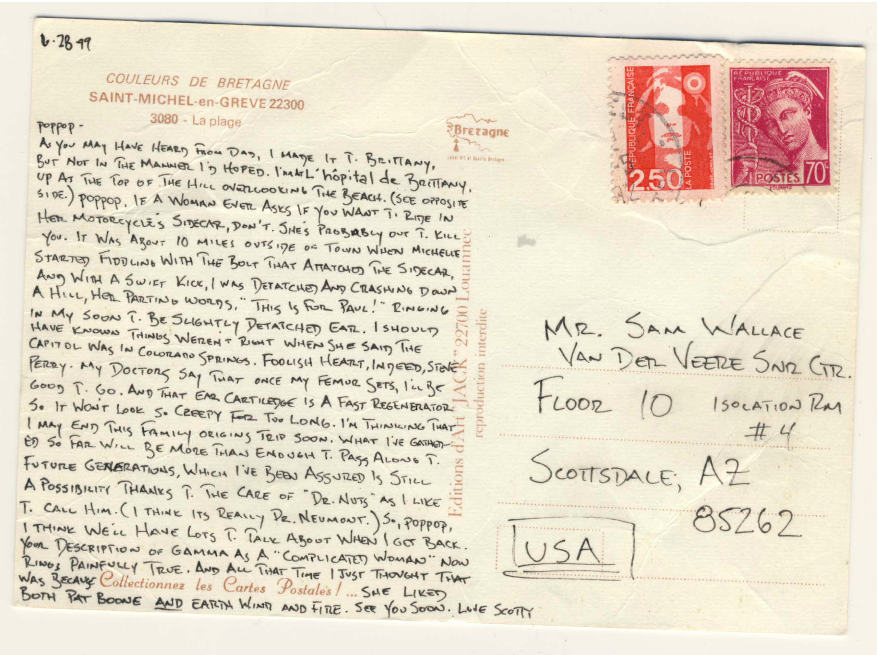 6·28 99
COULEURS DE BRETAGNE
SAINT-MICHEL-en-GREVE 22300
3080 - La plage
POPPOP -
AS YOU MAY HAVE HEARD FROM DAD, I MADE IT T. BRITTANY,
BUT NOT IN THE MANNER I'D HOPED. I'M AT L'hôpital de BRITTANY,
UP AT THE TOP OF THE HILL OVERLOOKING THE BEACH. (SEE OPPOSITE
SIDE.) POPPOP, IF A WOMAN EVER ASKS IF YOU WANT T. RIDE IN
HER MOTORCYCLE'S SIDECAR, DON'T. SHE'S PROBABLY OUT T. KILL
YOU. IT WAS ABOUT 10 MILES OUTSIDE OF TOWN WHEN MICHELLE
STARTED FIDDLING WITH THE BOLT THAT ATTATCHED THE SIDECAR,
AND WITH A SWIFT KICK, I WAS DETATCHED AND CRASHING DOWN
A HILL, HER PARTING WORDS, "THIS IS FOR PAUL!" RINGING
IN MY SOON T. BE SLIGHTLY DETATCHED EAR. I SHOULD
HAVE KNOWN THINGS WEREN'T RIGHT WHEN SHE SAID THE
CAPITOL WAS IN COLORADO SPRINGS. FOOLISH HEART, INDEED, STEVE
PERRY. MY DOCTORS SAY THAT ONCE MY FEMUR SETS, I'LL BE
GOOD T. GO. AND THAT EAR CARTILEDGE IS A FAST REGENERATOR
SO IT WON'T LOOK SO CREEPY FOR TOO LONG. I'M THINKING THAT
I MAY END THIS FAMILY ORIGINS TRIP SOON. WHAT I'VE GATHER-
ED SO FAR WILL BE MORE THAN ENOUGH T. PASS ALONG T.
FUTURE GENERATIONS, WHICH I'VE BEEN ASSURED IS STILL
A POSSIBILITY THANKS T. THE CARE OF "DR. NUTS" AS I LIKE
T. CALL HIM. (I THINK ITS REALLY DR. NEUMONT.) SO, POPPOP,
I THINK WE'LL HAVE LOTS T. TALK ABOUT WHEN I GOT BACK.
YOUR DESCRIPTION OF GAMMA AS A "COMPLICATED WOMAN" NOW
RINGS PAINFULLY TRUE. AND ALL THAT TIME I JUST THOUGHT THAT
WAS BECAUSE Collectionnez les Cartes Postales! ... SHE LIKED
BOTH PAT BOONE AND EARTH WIND AND FIRE. SEE YOU SOON. LOVE SCOTTY
Bretagne
Editions d'Art "JACK" 22700 Louannec
reproduction interdite
REPUBLIQUE FRANÇAISE
2.50
LA POSTE
REPUBLIQUE
FRANÇAISE
POSTES
70c
MR. SAM WALLACE
VAN DER VEERE SNR CTR.
FLOOR 10 ISOLATION RM
#4
SCOTTSDALE, AZ
85262
USA